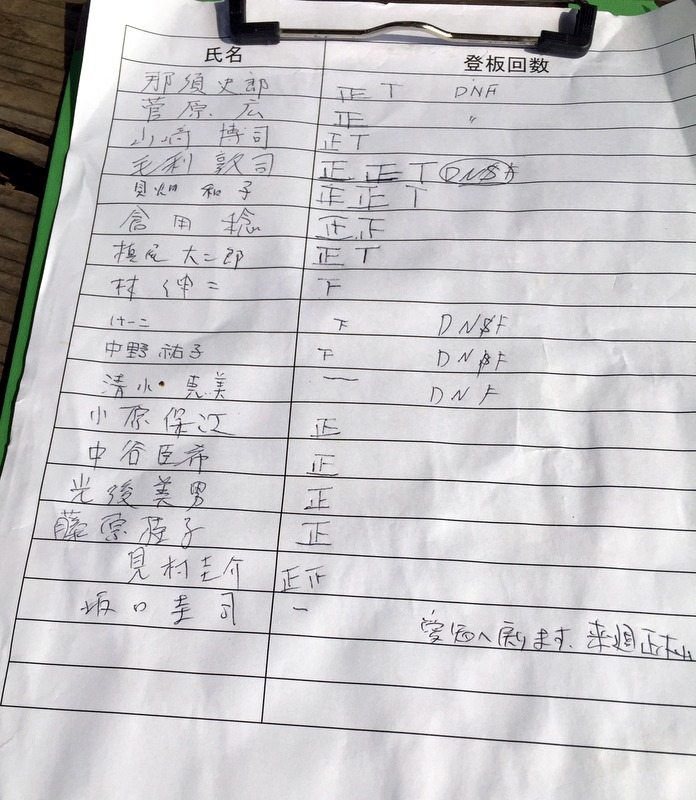 氏名 登板回数
那須史郎 正 T DNF
菅原 広 正 〃
山崎 博司 正 T
毛利 敦司 正 正 T DNSF
貝畑 和子 正 正 T
倉田 稔 正 下
槙尾 大二郎 正 T
林 伸二 下
下 DNSF
中野 祐子 下 DNSF
清水 恵美 一 DNF
小原保江 正
中谷臣希 正
光後美男 正
藤原佳子 正
見村圭介 正 正
坂口圭司 一
愛知へ戻ります、来週